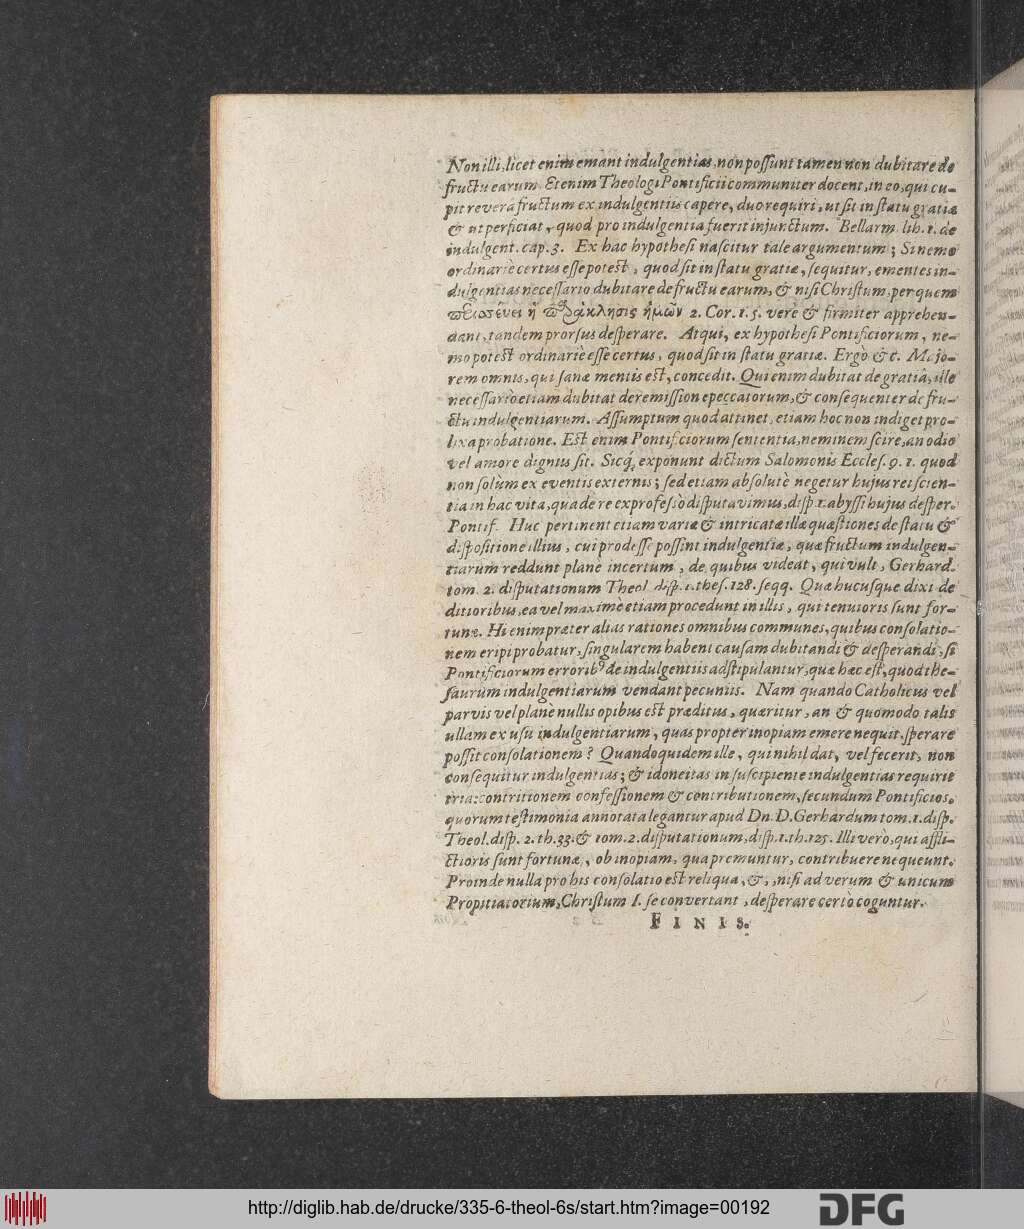 Non illi, licet enim emant indulgentias, non possunt tamen non dubitare de
fructu earum. Etenim Theologi Pontificii communiter docent, in eo, qui cu-
pit reverâ fructum ex indulgentiis capere, duo requiri, ut sit in statu gratiæ
& ut perficiat, quod pro indulgentia fuerit injunctum. Bellarm. lib. 1. de
indulgent. cap. 3. Ex hac hypothesi nascitur tale argumentum; Si nemo
ordinariè certus esse potest, quod sit in statu gratiæ, sequitur, ementes in-
dulgentias necessariò dubitare de fructu earum, & nisi Christum, per quem
περισσεύει ἡ παράκλησις ἡμῶν 2. Cor. 1. 5. verè & firmiter apprehen-
dant, tandem prorsus desperare. Atqui, ex hypothesi Pontificiorum, ne-
mo potest ordinariè esse certus, quod sit in statu gratiæ. Ergò &c. Majo-
rem omnis, qui sanæ mentis est, concedit. Qui enim dubitat de gratiâ, ille
necessariò etiam dubitat de remissione peccatorum, & consequenter de fru-
ctu indulgentiarum. Assumptum quod attinet, etiam hoc non indiget pro-
lixa probatione. Est enim Pontificiorum sententia, neminem scire, an odio
vel amore dignus sit. Sicq́; exponunt dictum Salomonis Eccles. 9. 1. quod
non solùm ex eventis externis; sed etiam absolutè negetur hujus rei scien-
tia in hac vita, qua de re ex professò disputavimus, disp. 1. abyssi hujus desper.
Pontif. Huc pertinent etiam variæ & intricatæ illæ quæstiones de statu &
dispositione illius, cui prodesse possint indulgentiæ, quæ fructum indulgen-
tiarum reddunt planè incertum, de quibus videat, qui vult, Gerhard.
tom. 2. disputationum Theol. disp. 1. thes. 128. seqq. Quæ hucusque dixi de
ditioribus, ea vel maximè etiam procedunt in illis, qui tenuioris sunt for-
tunæ. Hi enim præter alias rationes omnibus communes, quibus consolatio-
nem eripi probatur, singularem habent causam dubitandi & desperandi, si
Pontificiorum errorib⁹ de indulgentiis adstipulantur, quæ hæc est, quod the-
saurum indulgentiarum vendant pecuniis. Nam quando Catholicus vel
parvis vel planè nullis opibus est præditus, quæritur, an & quomodo talis
ullam ex usu indulgentiarum, quas propter inopiam emere nequit, sperare
possit consolationem? Quandoquidem ille, qui nihil dat, vel fecerit, non
consequitur indulgentias; & idoneitas in suscipiente indulgentias requirit
tria: contritionem confessionem & contributionem, secundum Pontificios.
quorum testimonia annotata legantur apud Dn. D. Gerhardum tom. 1. disp.
Theol. disp. 2. th. 33. & tom. 2. disputationum, disp. 1. th. 125. Illi verò, qui affli-
ctioris sunt fortunæ, ob inopiam, qua premuntur, contribuere nequeunt.
Proinde nulla pro his consolatio est reliqua, &, nisi ad verum & unicum
Propitiatorium, Christum I. se convertant, desperare certò coguntur.
FINIS.
http://diglib.hab.de/drucke/335-6-theol-6s/start.htm?image=00192
DFG